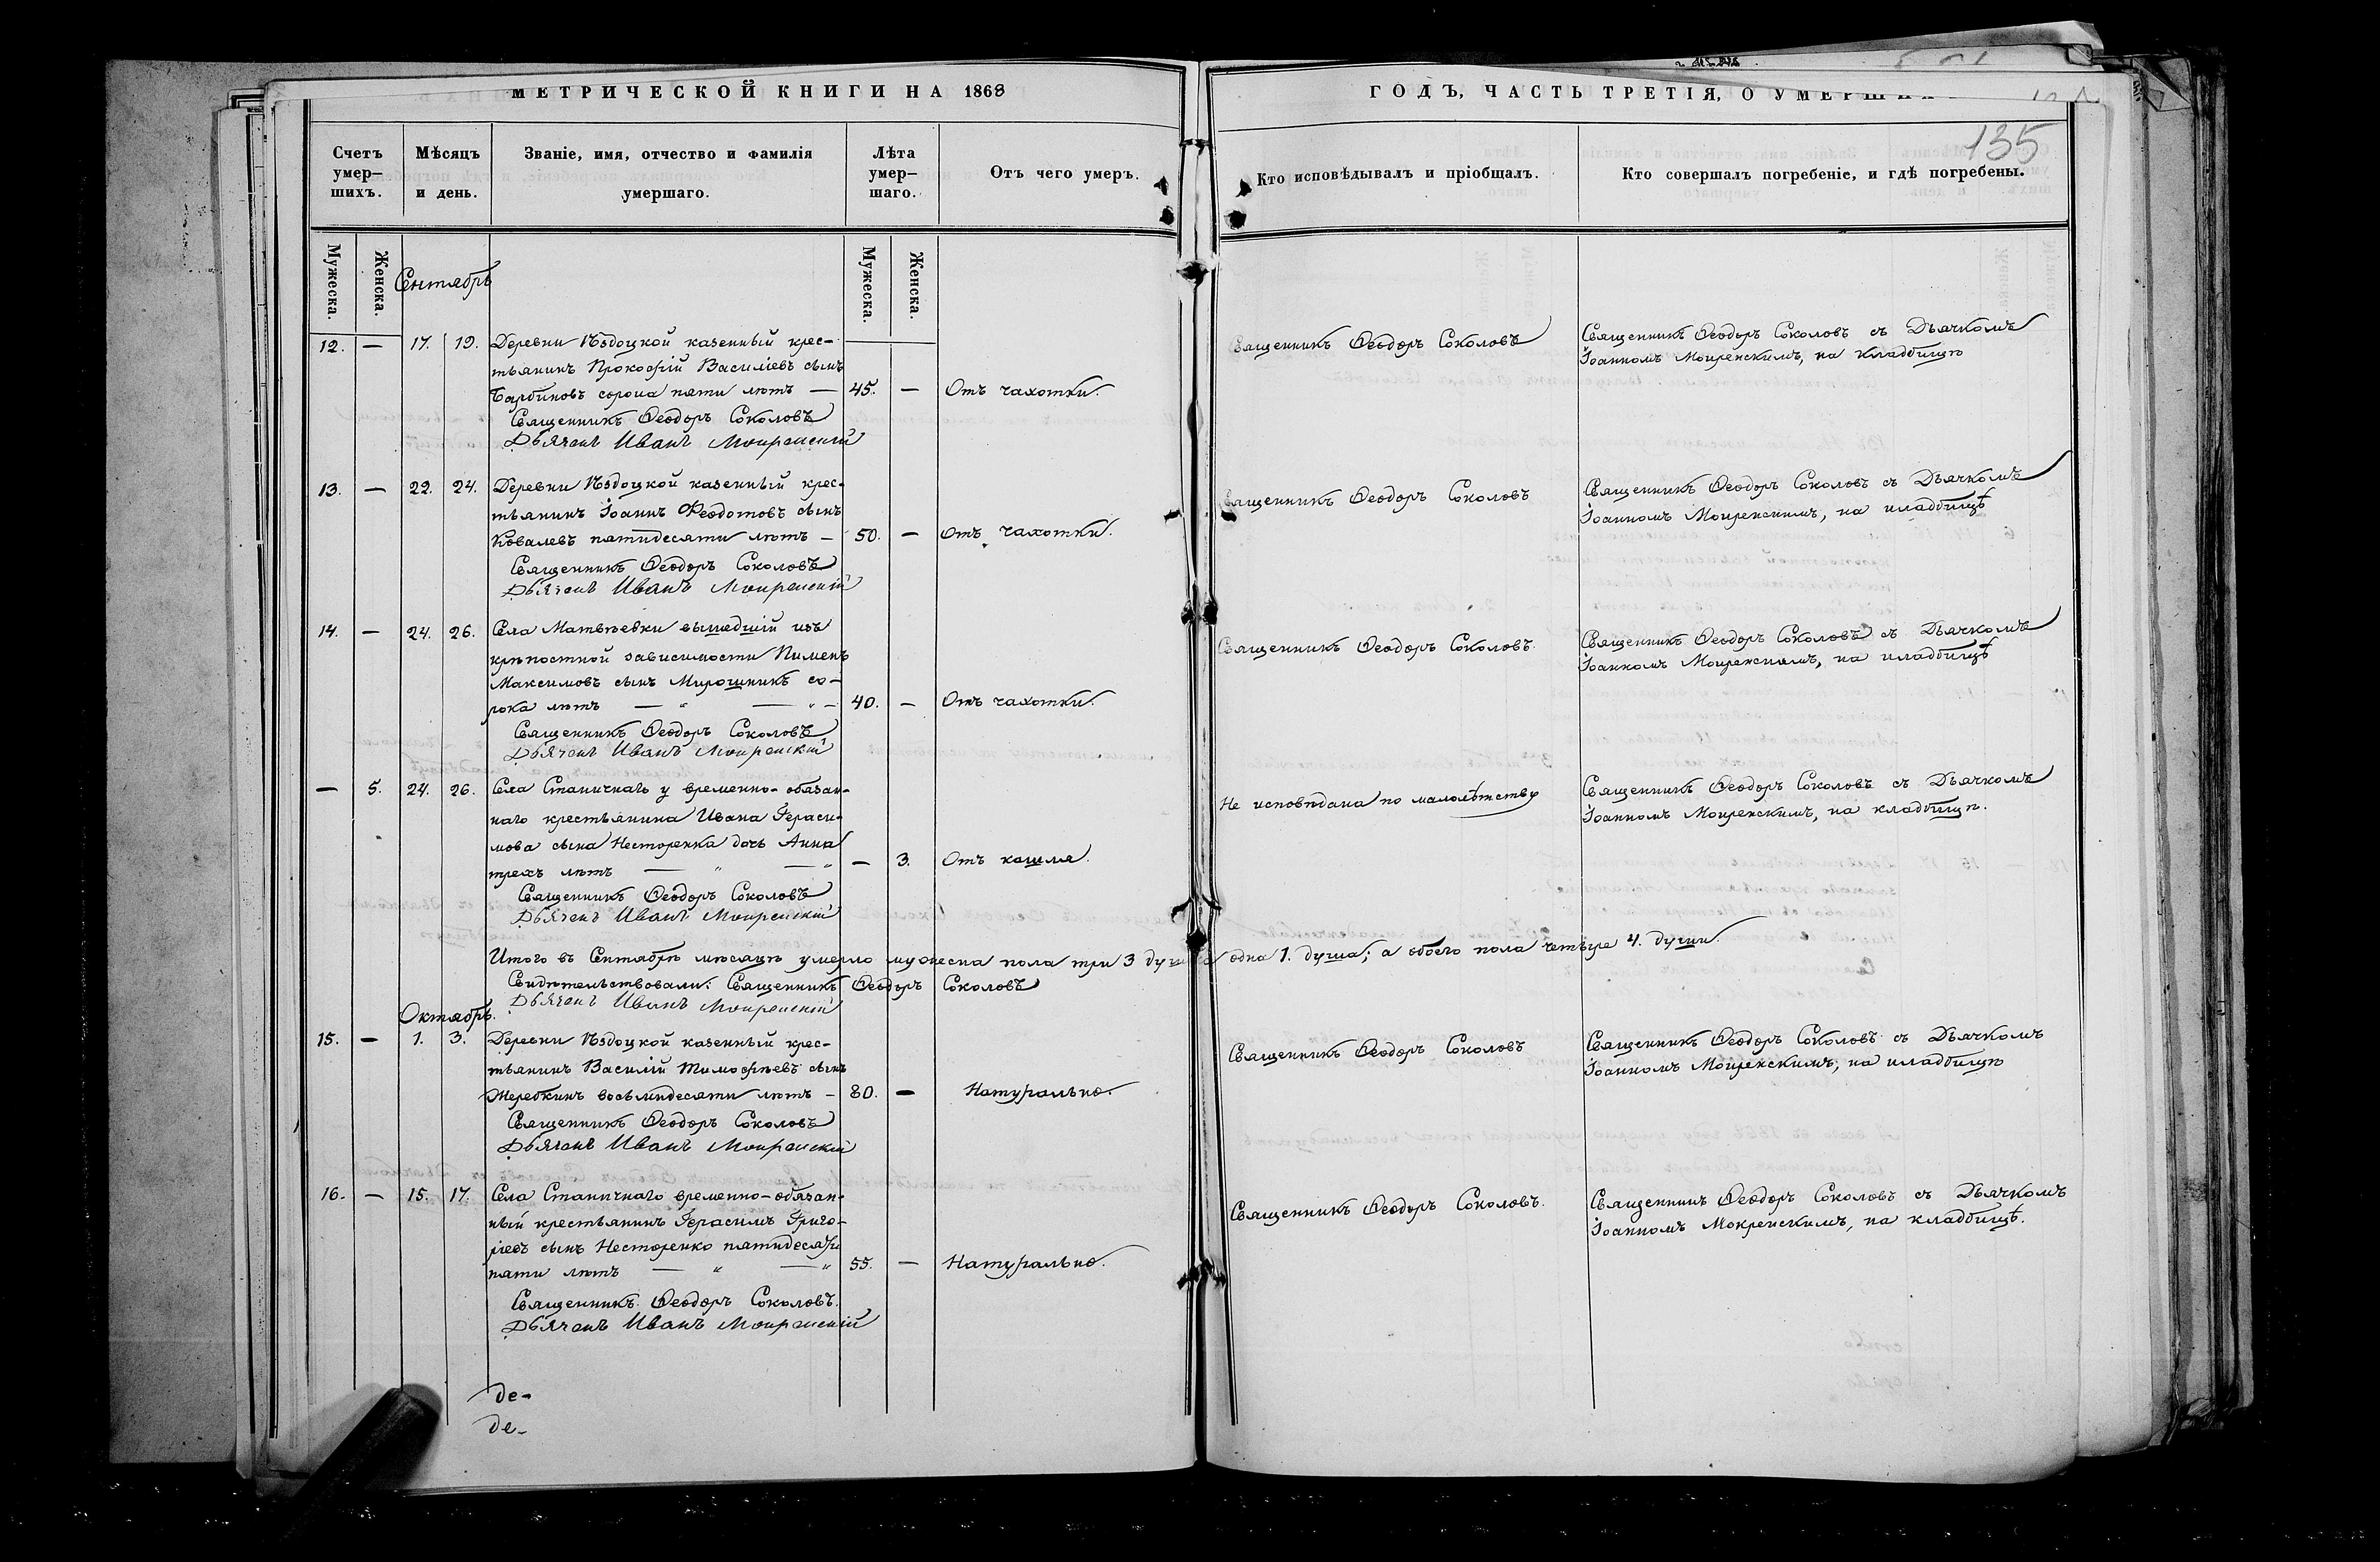 МЕТРИЧЕСКОЙ КНИГИ НА 1868
ГОДЪ, ЧАСТЬ ТРЕТІЯ, О УМЕРШИХЪ
135
Счетъ умер–шихъ.
Мѣсяцъ и день.
Званіе, имя, отчество и фамилія умершаго.
Лѣта умер–шаго.
Отъ чего умеръ.
Кто исповѣдывалъ и пріобщалъ.
Кто совершалъ погребеніе, и гдѣ погребены.
Мужеска.
Женска.
Мужеска.
Женска.
Сентябрь
12. — 17. 19. Деревни Ѣздоцкой казенный крес-
тьянинъ Прокофій Василіевъ сынъ
сорока пяти лѣтъ — 45. — Отъ чахотки.
Священникъ Ѳеодоръ Соколовъ
Дьячекъ Иванъ Мокренскій
Священникъ Ѳеодоръ Соколовъ
Священникъ Ѳеодоръ Соколовъ съ Дьячкомъ
Іоанномъ Мокренскимъ, на кладбищѣ
13. — 22. 24. Деревни Ѣздоцкой казенный крес-
тьянинъ Іоаннъ Ѳеодотовъ сынъ
Ковалевъ пятидесяти лѣтъ — 50. — Отъ чахотки.
Священникъ Ѳеодоръ Соколовъ
Дьячекъ Иванъ Мокренскій
Священникъ Ѳеодоръ Соколовъ
Священникъ Ѳеодоръ Соколовъ съ Дьячкомъ
Іоанномъ Мокренскимъ, на кладбищѣ
14. — 24. 26. Села Матвѣевки вышедшій изъ
крѣпостной зависимости Пименъ
Максимовъ сынъ Мирошникъ со-
рока лѣтъ — " — " — 40. — Отъ чахотки.
Священникъ Ѳеодоръ Соколовъ
Дьячекъ Иванъ Мокренскій
Священникъ Ѳеодоръ Соколовъ.
Священникъ Ѳеодоръ Соколовъ съ Дьячкомъ
Іоанномъ Мокренскимъ, на кладбищѣ
— 5. 24. 26. Села Станичнаго у временно-обязан-
наго крестьянина Ивана Гераси-
мова сына Нестеренка дочь Анна
трехъ лѣтъ — " — " — 3. Отъ кашля.
Священникъ Ѳеодоръ Соколовъ
Дьячекъ Иванъ Мокренскій
Не исповѣдана по малолѣтству
Священникъ Ѳеодоръ Соколовъ съ Дьячкомъ
Іоанномъ Мокренскимъ, на кладбищѣ.
Итого въ Сентябрѣ мѣсяцѣ умерло мужеска пола три 3 души одна 1. душа; а обоего пола четыре 4. души.
Свидѣтельствовали: Священникъ Ѳеодоръ Соколовъ
Дьячекъ Иванъ Мокренскій
Октябрь.
15. — 1. 3. Деревни Ѣздоцкой казенный крес-
тьянинъ Василій Тимофѣевъ сынъ
Жеребкинъ восьмидесяти лѣтъ — 80. — Натурально.
Священникъ Ѳеодоръ Соколовъ
Дьячекъ Иванъ Мокренскій
Священникъ Ѳеодоръ Соколовъ
Священникъ Ѳеодоръ Соколовъ съ Дьячкомъ
Іоанномъ Мокренскимъ, на кладбищѣ
16. — 15. 17. Села Станичнаго временно-обязан-
ный крестьянинъ Герасимъ Григо-
ріевъ сынъ Нестеренко пятидесяти
пяти лѣтъ — " — " 55. — Натурально.
Священникъ Ѳеодоръ Соколовъ.
Дьячекъ Иванъ Мокренскій
Священникъ Ѳеодоръ Соколовъ.
Священникъ Ѳеодоръ Соколовъ съ Дьячкомъ
Іоанномъ Мокренскимъ, на кладбищѣ.
де-
де-